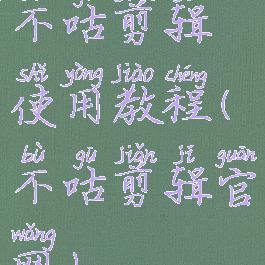 不咕剪辑
shǐ yòng jiào chéng
使用教程(
bù gū jiǎn jí guān
不咕剪辑官
wǎng